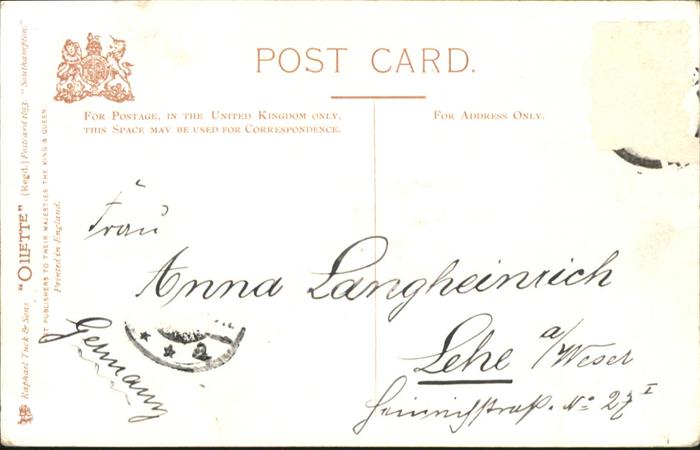 POST CARD.
FOR POSTAGE, IN THE UNITED KINGDOM ONLY,
THIS SPACE MAY BE USED FOR CORRESPONDENCE.
FOR ADDRESS ONLY.
Raphael Tuck & Sons' "OILETTE" [Regd.] Postcard 1653. "Southampton."
ART PUBLISHERS TO THEIR MAJESTIES THE KING & QUEEN.
Printed in England.
Frau
Anna Langheinrich
Lehe a/Weser
Heinrichstraß. No 27 I
Germany
2